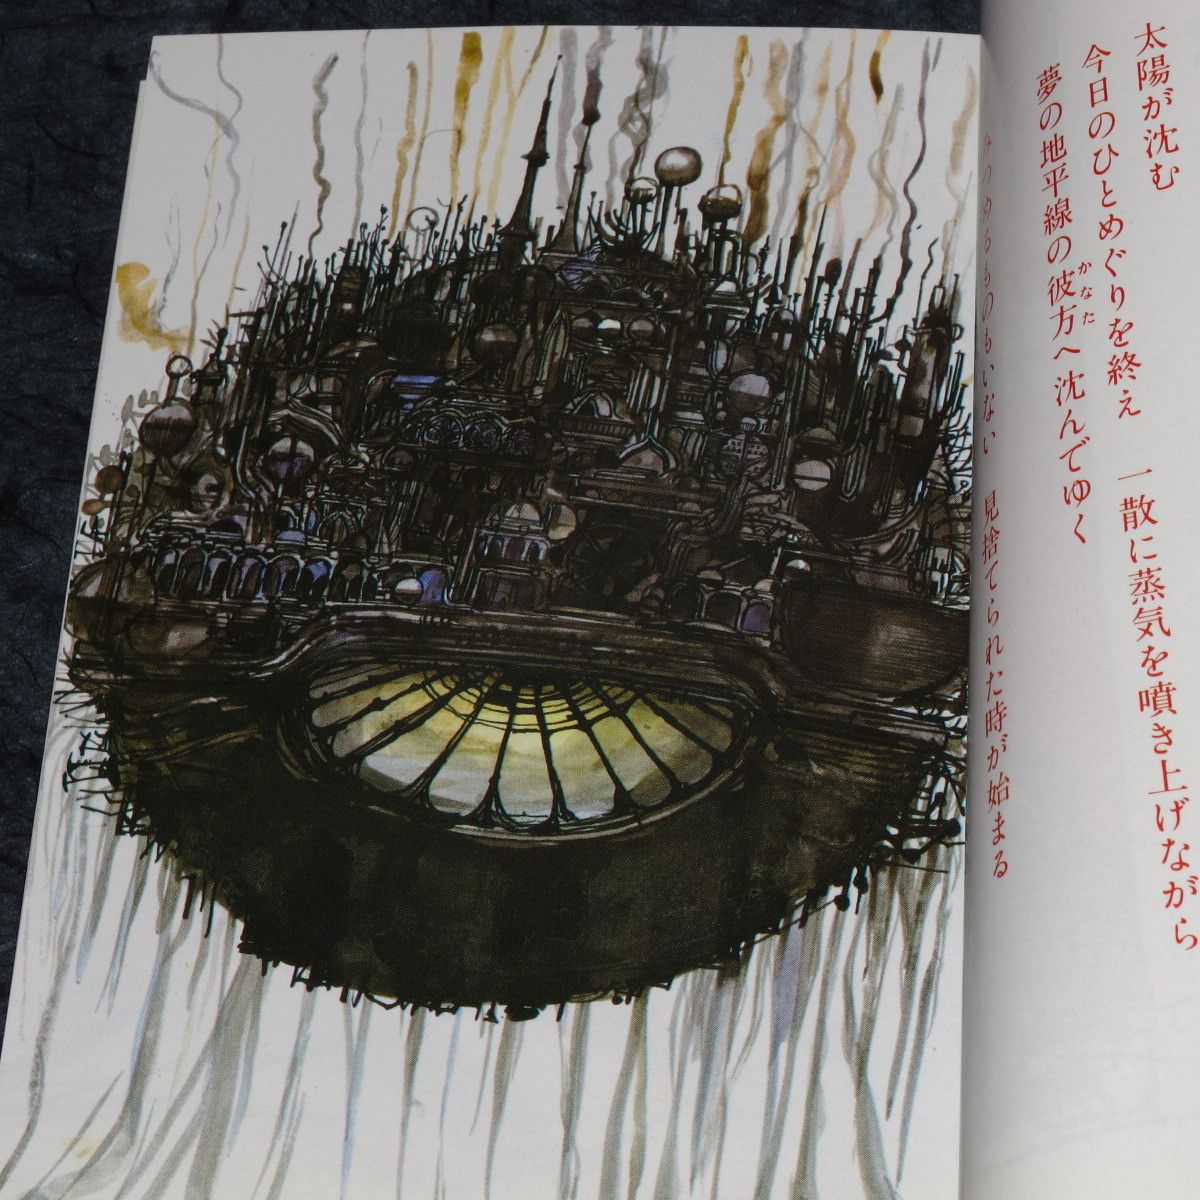 太陽が沈む
今日のひとめぐりを終え　一散に蒸気を噴き上げながら
夢の地平線の彼方へ沈んでゆく
かなた
みつめるものもいない　見捨てられた時が始まる